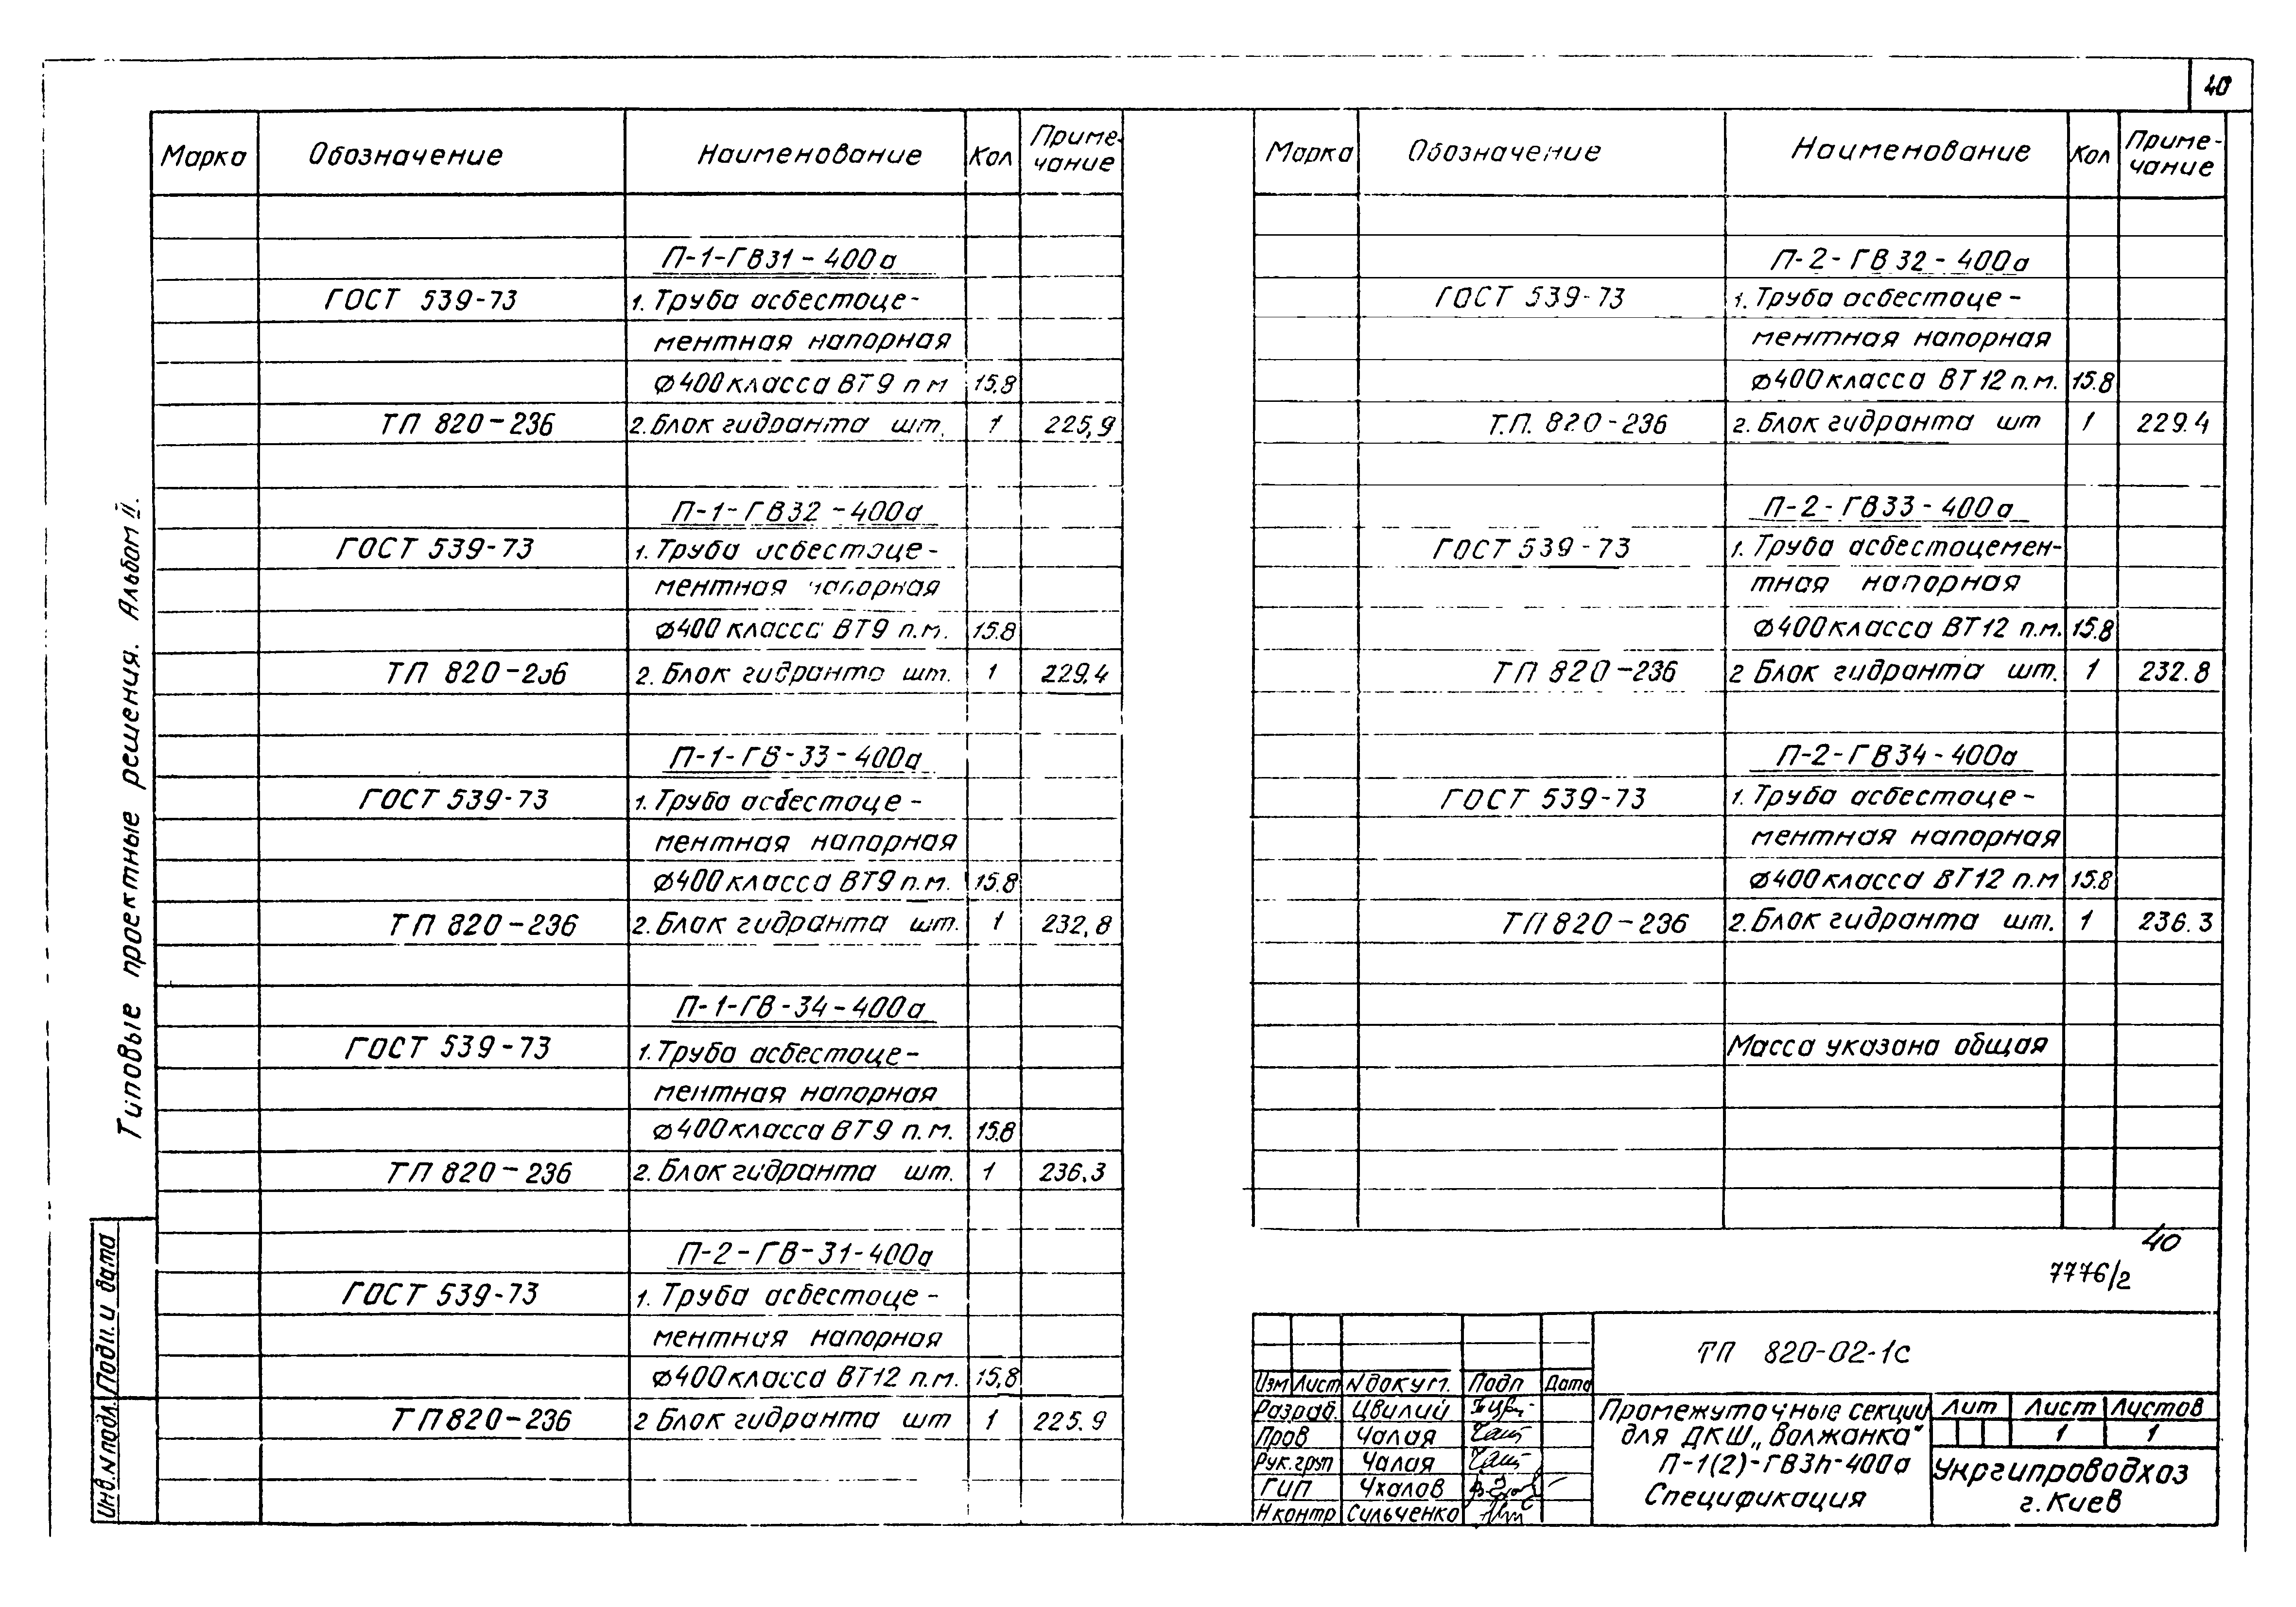 40
Типовые проектные решения. Альбом II.
Марка Обозначение Наименование Кол Приме-
чание
П-1-ГВ31-400а
ГОСТ 539-73 1. Труба асбестоце-
ментная напорная
⌀400 класса ВТ9 п м 15.8
ТП 820-236 2. Блок гидранта шт. 1 225,9
П-1-ГВ32-400а
ГОСТ 539-73 1. Труба асбестоце-
ментная напорная
⌀400 класса ВТ9 п.м. 15.8
ТП 820-236 2. Блок гидранта шт. 1 229.4
П-1-ГВ-33-400а
ГОСТ 539-73 1. Труба асбестоце-
ментная напорная
⌀400 класса ВТ9 п.м. 15.8
ТП 820-236 2. Блок гидранта шт. 1 232,8
П-1-ГВ-34-400а
ГОСТ 539-73 1. Труба асбестоце-
ментная напорная
⌀400 класса ВТ9 п.м. 15.8
ТП 820-236 2. Блок гидранта шт. 1 236.3
П-2-ГВ-31-400а
ГОСТ 539-73 1. Труба асбестоце-
ментная напорная
⌀400 класса ВТ12 п.м. 15,8
ТП 820-236 2 Блок гидранта шт 1 225.9
Марка Обозначение Наименование Кол Приме-
чание
П-2-ГВ32-400а
ГОСТ 539-73 1. Труба асбестоце-
ментная напорная
⌀400 класса ВТ12 п.м. 15.8
Т.П. 820-236 2. Блок гидранта шт 1 229.4
П-2-ГВ33-400а
ГОСТ 539-73 1. Труба асбестоцемен-
тная напорная
⌀400 класса ВТ12 п.м. 15.8
ТП 820-236 2 Блок гидранта шт. 1 232.8
П-2-ГВ34-400а
ГОСТ 539-73 1. Труба асбестоце-
ментная напорная
⌀400 класса ВТ12 п.м 15.8
ТП 820-236 2. Блок гидранта шт. 1 236.3
Масса указана общая
40
7776/2
ТП 820-02-1с
Изм Лист N докум. Подп Дата
Разраб. Цвилий
Пров Чалая
Рук.груп Чалая
ГИП Чхалов
Н контр Сильченко
Промежуточные секции
для ДКШ „Волжанка"
П-1(2)-ГВ3h-400а
Спецификация
Лит Лист Листов
1 1
Укргипроводхоз
г. Киев
Инв. N подл. Подп. и дата